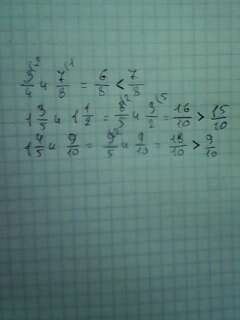 и 7/5 = 6/5 < 7/5
1 3/5 и 1 1/2 = 8/5 и 3/2 = 16/10 > 15/10
1 4/5 и 9/10 = 9/5 и 9/10 = 18/10 > 9/10